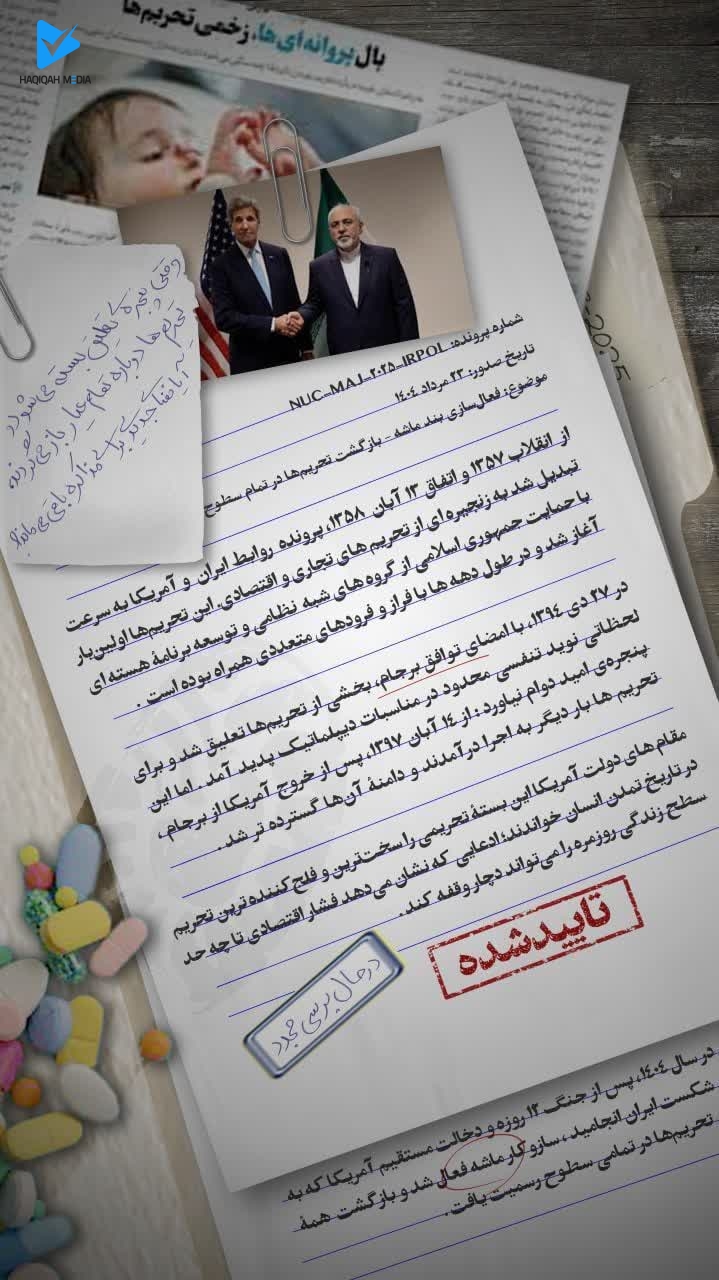 HAQIQAH MEDIA
بال پروانه‌ای‌ها، زخمی تحریم‌ها
شماره پرونده: NUC-MAJ-۲۰۲۵-IRPOL
تاریخ صدور: ۲۳ مرداد ۱۴۰۴
موضوع: فعال‌سازی بند ماشه - بازگشت تحریم‌ها در تمام سطوح
وقتی پنجره تعلیق بسته می‌شود و
تحریم‌ها دوباره تمام عیار باز می‌گردند
آیا فضا جدیدی برای مذاکره باقی می‌ماند؟
از انقلاب ۱۳۵۷ و اتفاق ۱۳ آبان ۱۳۵۸، پرونده روابط ایران و آمریکا به سرعت
تبدیل شد به زنجیره‌ای از تحریم های تجاری و اقتصادی. این تحریم‌ها اولین‌بار
با حمایت جمهوری اسلامی از گروه های شبه نظامی و توسعه برنامهٔ هسته ای
آغاز شد و در طول دهه ها با فراز و فرودهای متعددی همراه بوده است .
در ۲۷ دی ۱۳۹۴، با امضای توافق برجام، بخشی از تحریم‌ها تعلیق شد و برای
لحظاتی نوید تنفسی محدود در مناسبات دیپلماتیک پدید آمد . اما این
پنجره‌ی امید دوام نیاورد : از ۱۴ آبان ۱۳۹۷، پس از خروج آمریکا از برجام،
تحریم ها بار دیگر به اجرا درآمدند و دامنهٔ آن‌ها گسترده تر شد .
مقام های دولت آمریکا این بستهٔ تحریمی را سخت‌ترین و فلج کننده ترین تحریم
در تاریخ تمدن انسان خواندند؛ ادعایی که نشان می‌دهد فشار اقتصادی تا چه حد
سطح زندگی روزمره را می‌تواند دچار وقفه کند .
تاییدشده
درحال بررسی مجدد
در سال ۱۴۰۴، پس از جنگ ۱۲ روزه و دخالت مستقیم آمریکا که به
شکست ایران انجامید ، سازو کار ماشه فعال شد و بازگشت همهٔ
تحریم‌ها در تمامی سطوح رسمیت یافت .